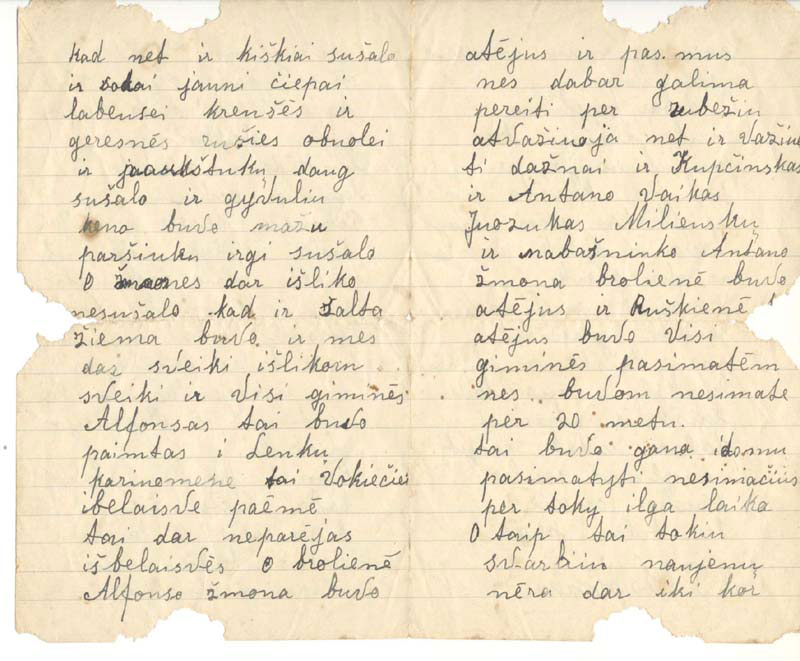 kad net ir kiškiai sušalo
ir sodai jauni čiepai
labensei krenšės ir
geresnės rušies obuolei
ir paukštuku daug
sušalo ir gyvuliu
keno buvo mažu
paršiuku irgi sušalo
O žmones dar išliko
nesušalo kad ir šalta
žiema buvo ir mes
dar sveiki išlikom
sveiki ir visi giminės
Alfonsas tai buvo
paimtas i Lenku
karinomene tai Vokiečiei
ibelaisve paėmė
tai dar neparėjas
išbelaisvės O brolienė
Alfonso žmona buvo
atėjus ir pas. mus
nes dabar galima
pereiti per rubežiu
atvažinoja net ir važine
ti dažnai ir Kupčinskas
ir Antano vaikas
Juozukas Miliensku
ir nabašninko Antano
žmona brolienė buvo
atėjus ir Ruškienė
atėjus buvo visi
giminės pasimatėm
nes buvom nesimate
per 20 metu.
tai buvo gana idomu
pasimatyti nesimačius
per toky ilga laika
O taip tai tokiu
svarbiu naujenu
nėra dar iki kol